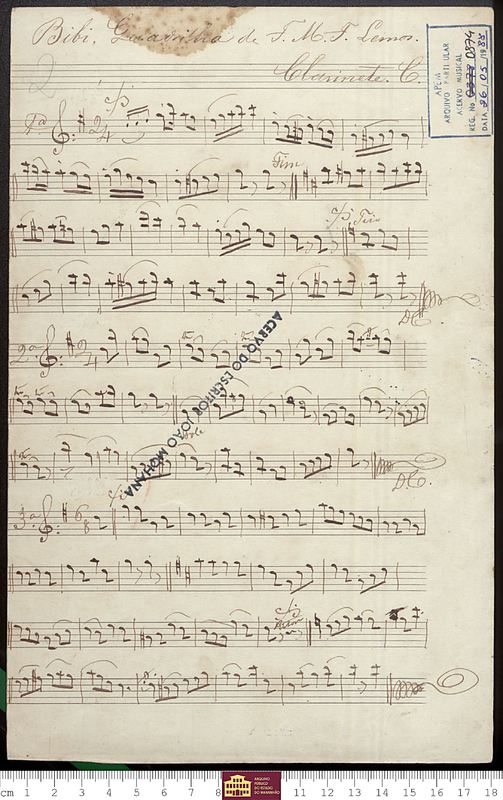 Bibi. Quadrilha de F. M. F. Lemos.
Clarinete. C.
APEM
ARQUIVO PARTILULAR
ACERVO MUSICAL
REG. No 0378 0874
DATA 26/05/1988
2
1ª
2/4
Fim
Trio
D.C.
2ª
2/4
ACERVO DO ESCRITOR JOÃO MOHANA
D.C.
3ª
6/8
cm 1 2 3 4 5 6 7 8 11 12 13 14 15 16 17 18
ARQUIVO
PÚBLICO
DO ESTADO
DO MARANHÃO